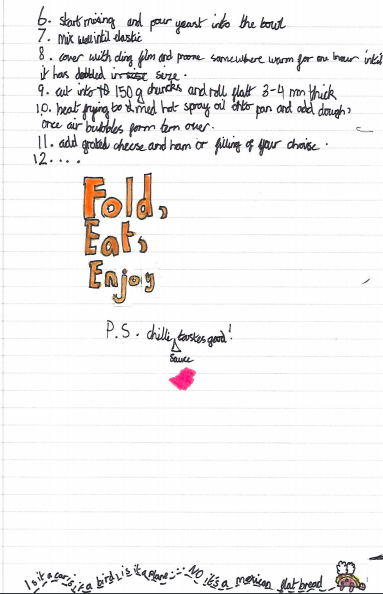 6. start mixing and pour yeast into the bowl
7. mix well until elastic
8. cover with cling film and proone somewhere warm for one hour
it has dobbled in size.
9. cut into 150g chuncks and roll flatt 3-4 mm thick
10. heat frying to med hot spray oil onto pan and add dough,
once air bubbles form tern over.
11. add grated cheese and ham or filling of your choise.
12....
Fold,
Eat,
Enjoy
P.S. chilli sauce tastes good!
Is it a car is it a bird, is it a plane... NO it's a mexican flat bread